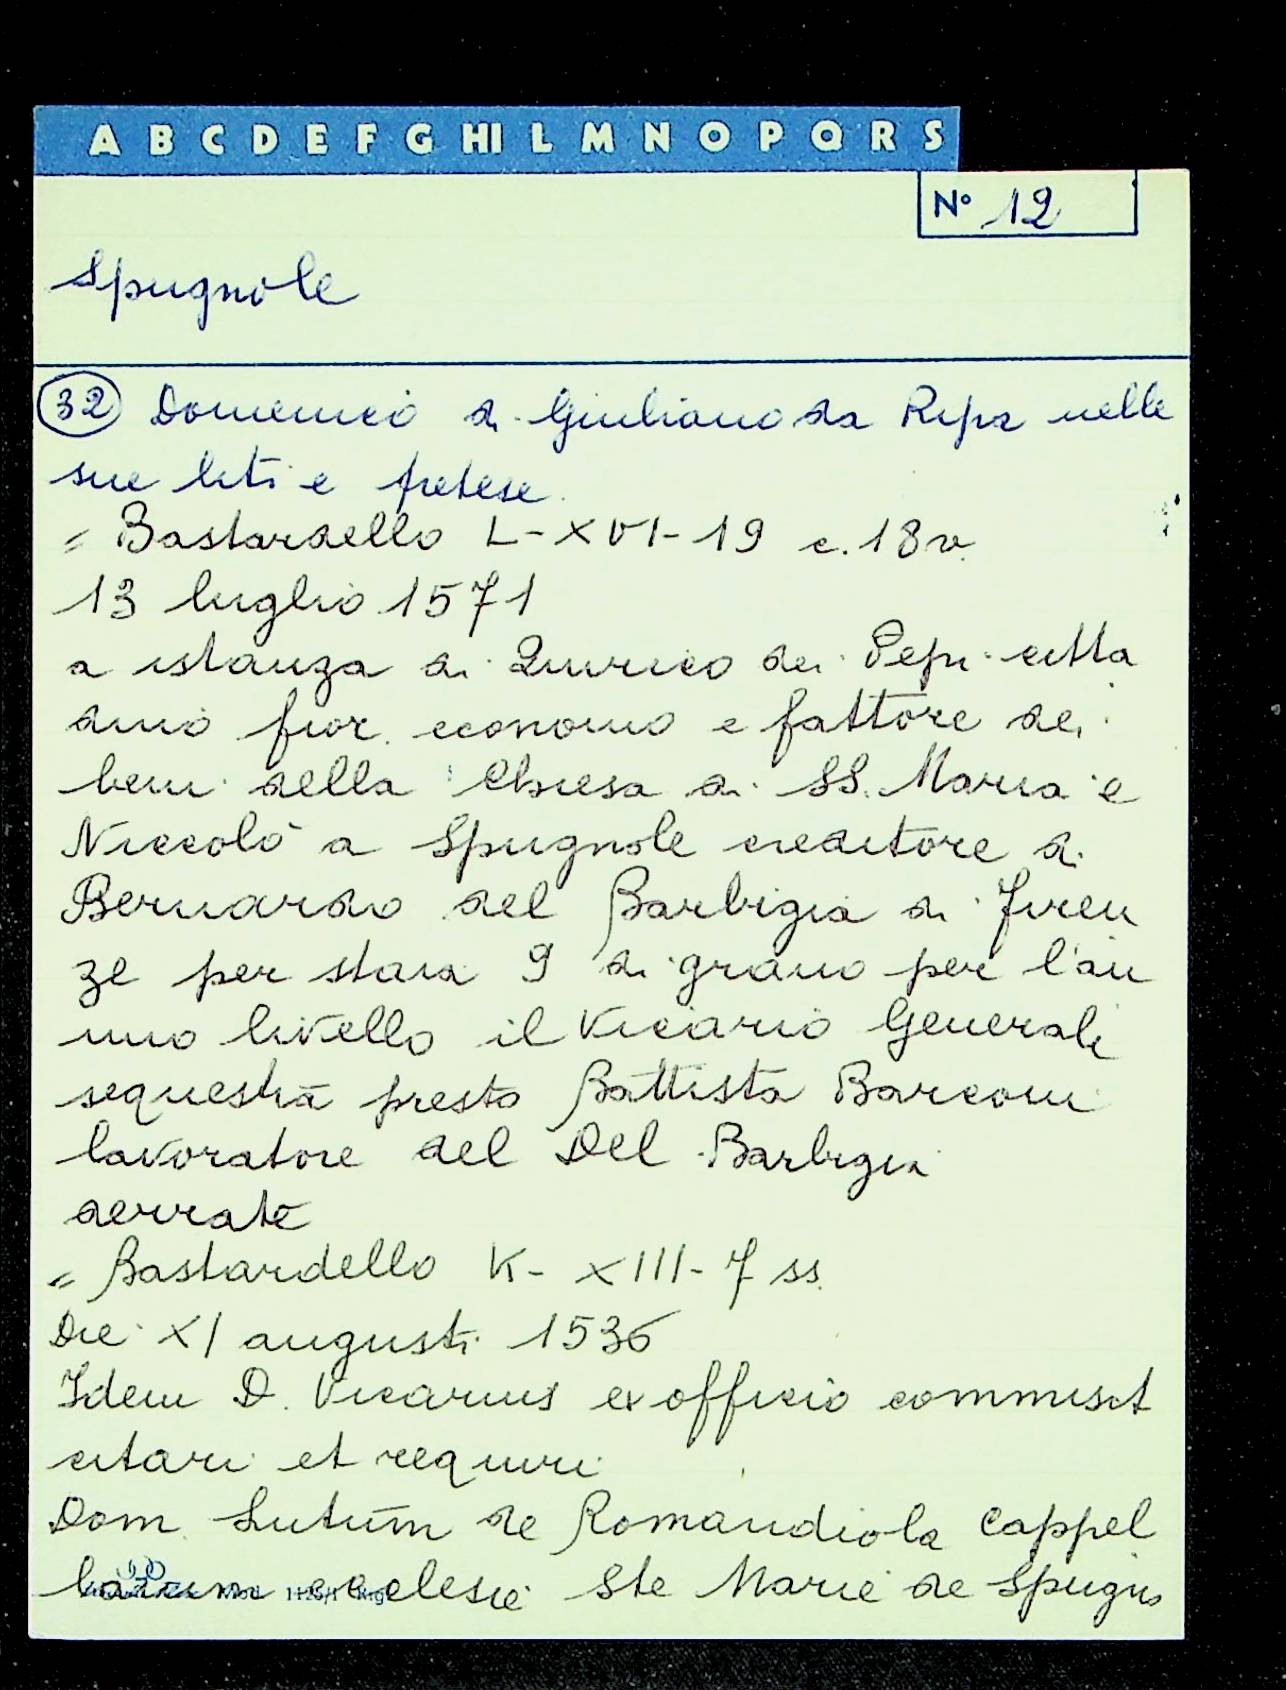 A B C D E F G HI L M N O P Q R S
N° 12
Spugnole
32 Domenico di Giuliano da Ripa nelle
sue liti e pretese.
= Bastardello L-XVI-19 c. 18v.
13 luglio 1571
a istanza di Quirico dei Pepi citta
dino fior. economo e fattore dei
beni della Chiesa di SS. Maria e
Niccolò a Spugnole creditore di
Bernardo del Barbigia di Firen
ze per staia 9 di grano per l'an
nuo livello il Vicario Generale
sequestra presto Battista Barconi
lavoratore del Del Barbigia
derrate
= Bastardello K- XIII-7 ss.
Die XI augusti 1536
Idem D. Vicarius ex officio commisit
citari et requiri
Dom. de Romandiola Cappel
lanum ecclesie Ste Marie de Spugno